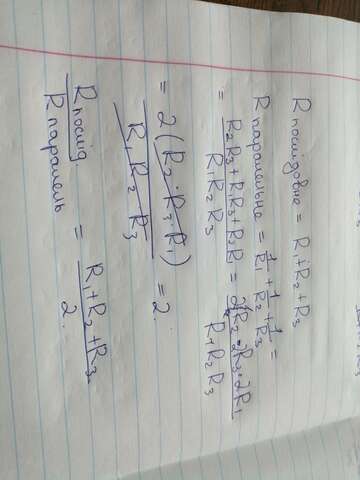 R послідовне = R₁+R₂+R₃
R паралельне = 1/R₁ + 1/R₂ + 1/R₃ =
= (R₂R₃+R₁R₃+R₂R)/(R₁R₂R₃) = (2R₂·2R₃·2R₁)/(R₁R₂R₃)
= 2(R₂·R₃·R₁)/(R₁R₂R₃) = 2.
R послід./R паралель = (R₁+R₂+R₃)/2.